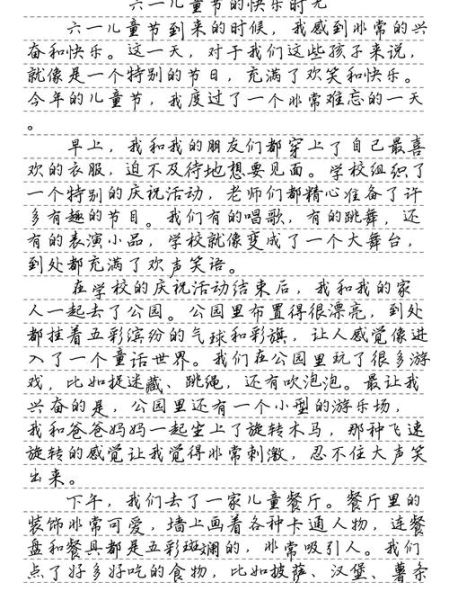 六一儿童节的快乐时光
六一儿童节到来的时候，我感到非常的兴
奋和快乐。这一天，对于我们这些孩子来说，
就像是一个特别的节日，充满了欢笑和快乐。
今年的儿童节，我度过了一个非常难忘的一天
。
早上，我和我的朋友们都穿上了自己最喜
欢的衣服，迫不及待地想要见面。学校组织了
一个特别的庆祝活动，老师们都精心准备了许
多有趣的节目。我们有的唱歌，有的跳舞，还
有的表演小品，学校就像变成了一个大舞台，
到处都充满了欢声笑语。
在学校的庆祝活动结束后，我和我的家
人一起去了公园。公园里布置得很漂亮，到处
都挂着五彩缤纷的气球和彩旗，让人感觉像进
入了一个童话世界。我们在公园里玩了很多游
戏，比如捉迷藏、跳绳，还有吹泡泡。最让我
兴奋的是，公园里还有一个小型的游乐场，
我和爸爸妈妈一起坐上了旋转木马，那种飞速
旋转的感觉让我觉得非常刺激，忍不住大声笑
出来。
下午，我们去了一家儿童餐厅。餐厅里的
装饰非常可爱，墙上画着各种卡通人物，连餐
盘和餐具都是五彩斑斓的，非常吸引人。我们
点了好多好吃的食物，比如披萨、汉堡、薯条